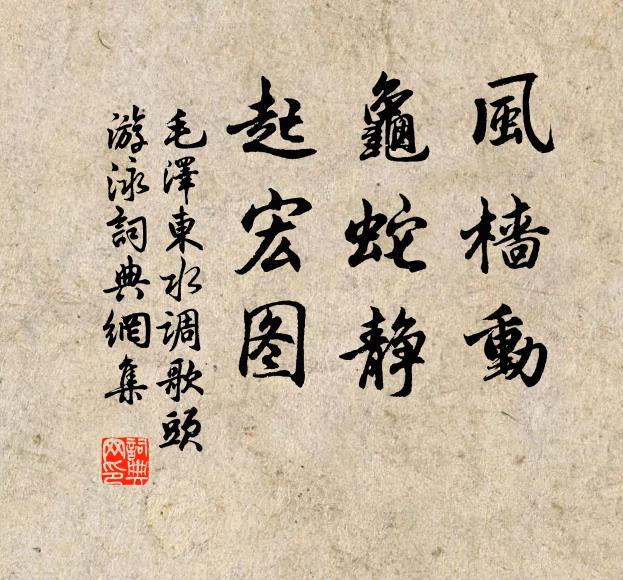 風樯動
龜蛇静
起宏图
毛澤東水调歌頭
游泳詞典網集
詞典网印